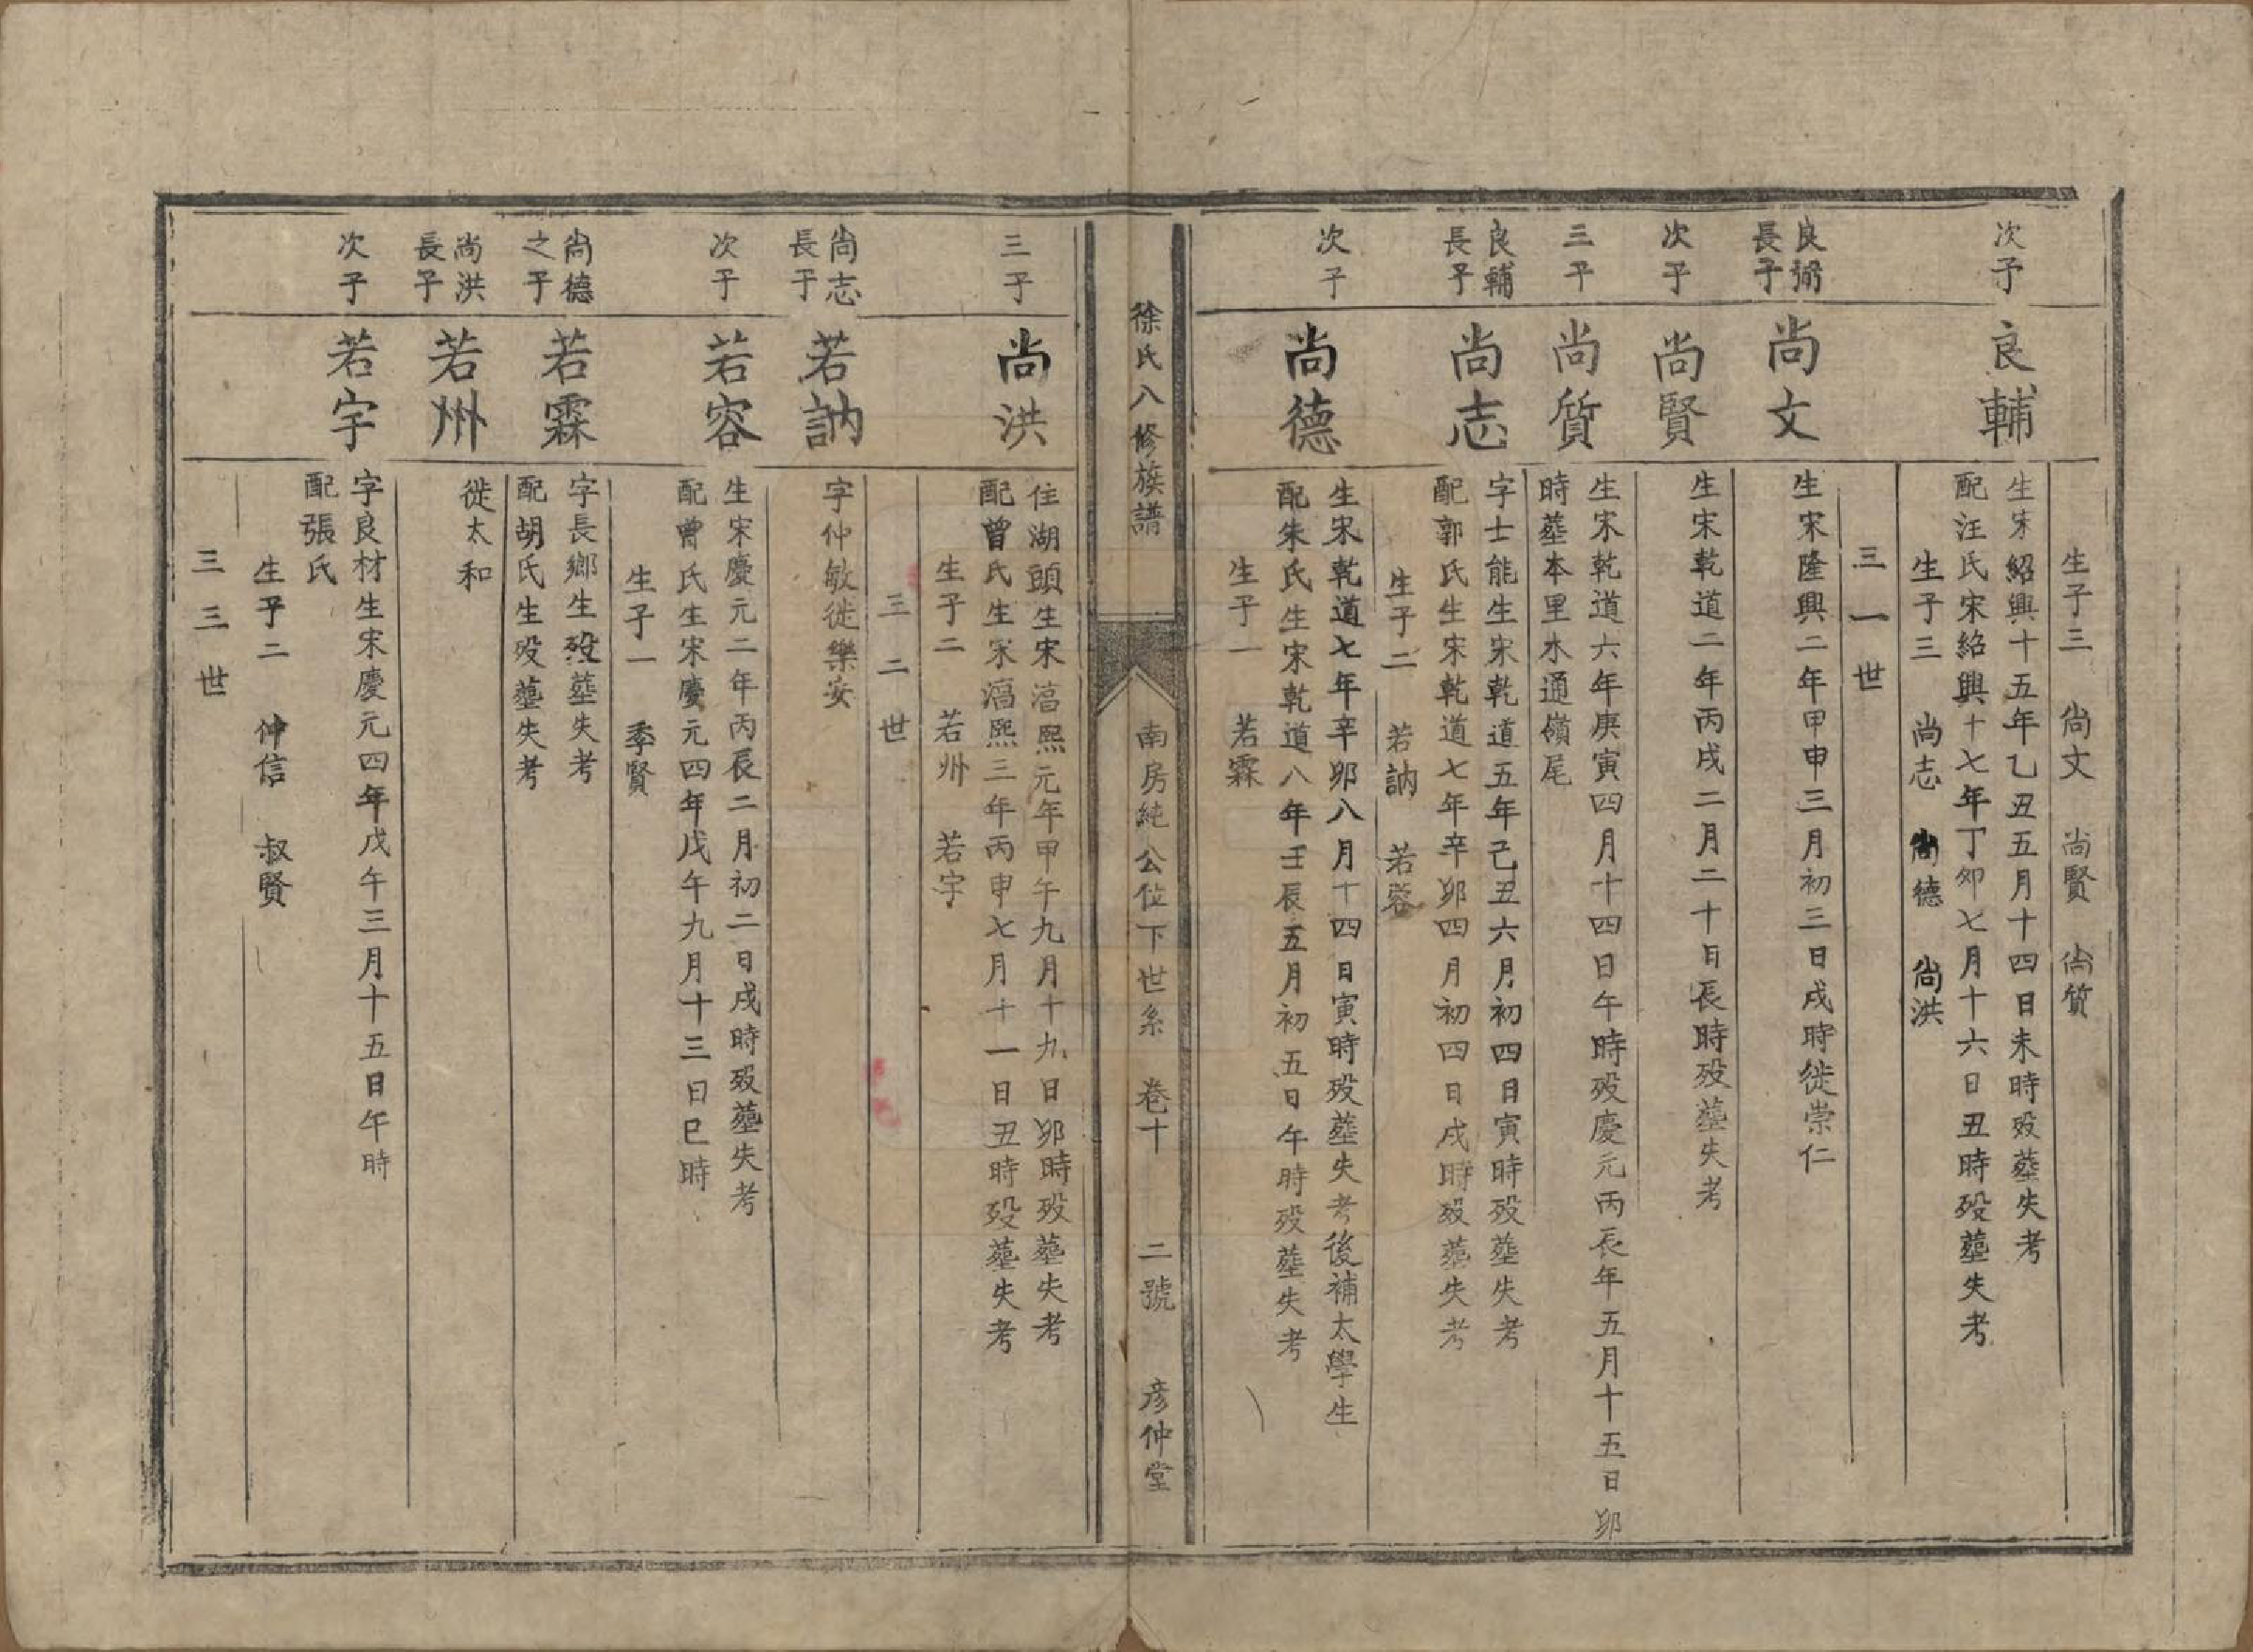 生子三　尚文　尚賢　尚質
次子
良輔
生宋紹興十五年乙丑五月十四日未時殁葬失考
配汪氏宋紹興十七年丁卯七月十六日丑時殁葬失考
生子三　尚志　尚德　尚洪
三一世
良弼
長子
尚文
生宋隆興二年甲申三月初三日戌時徙崇仁
次子
尚賢
生宋乾道二年丙戌二月二十日辰時殁葬失考
三子
尚質
生宋乾道六年庚寅四月十四日午時殁慶元丙辰年五月十五日卯
時葬本里水通嶺尾
良輔
長子
尚志
字士能生宋乾道五年己丑六月初四日寅時殁葬失考
配郭氏生宋乾道七年辛卯四月初四日戌時殁葬失考
生子二　若訥　若容
次子
尚德
生宋乾道七年辛卯八月十四日寅時殁葬失考後補太學生
配朱氏生宋乾道八年壬辰五月初五日午時殁葬失考
生子一　若霖
徐氏八修族譜　南房純公位下世系　卷十　二號　彥仲堂
三子
尚洪
住湖頭生宋淳熙元年甲午九月十九日卯時殁葬失考
配曾氏生宋淳熙三年丙申七月十一日丑時殁葬失考
生子二　若州　若宇
三二世
尚志
長子
若訥
字仲敏徙樂安
次子
若容
生宋慶元二年丙辰二月初二日戌時殁葬失考
配曾氏生宋慶元四年戊午九月十三日巳時
生子一　季賢
尚德
之子
若霖
字長鄉生殁葬失考
配胡氏生殁葬失考
尚洪
長子
若州
徙太和
次子
若宇
字良材生宋慶元四年戊午三月十五日午時
配張氏
生子二　仲信　叔賢
三三世